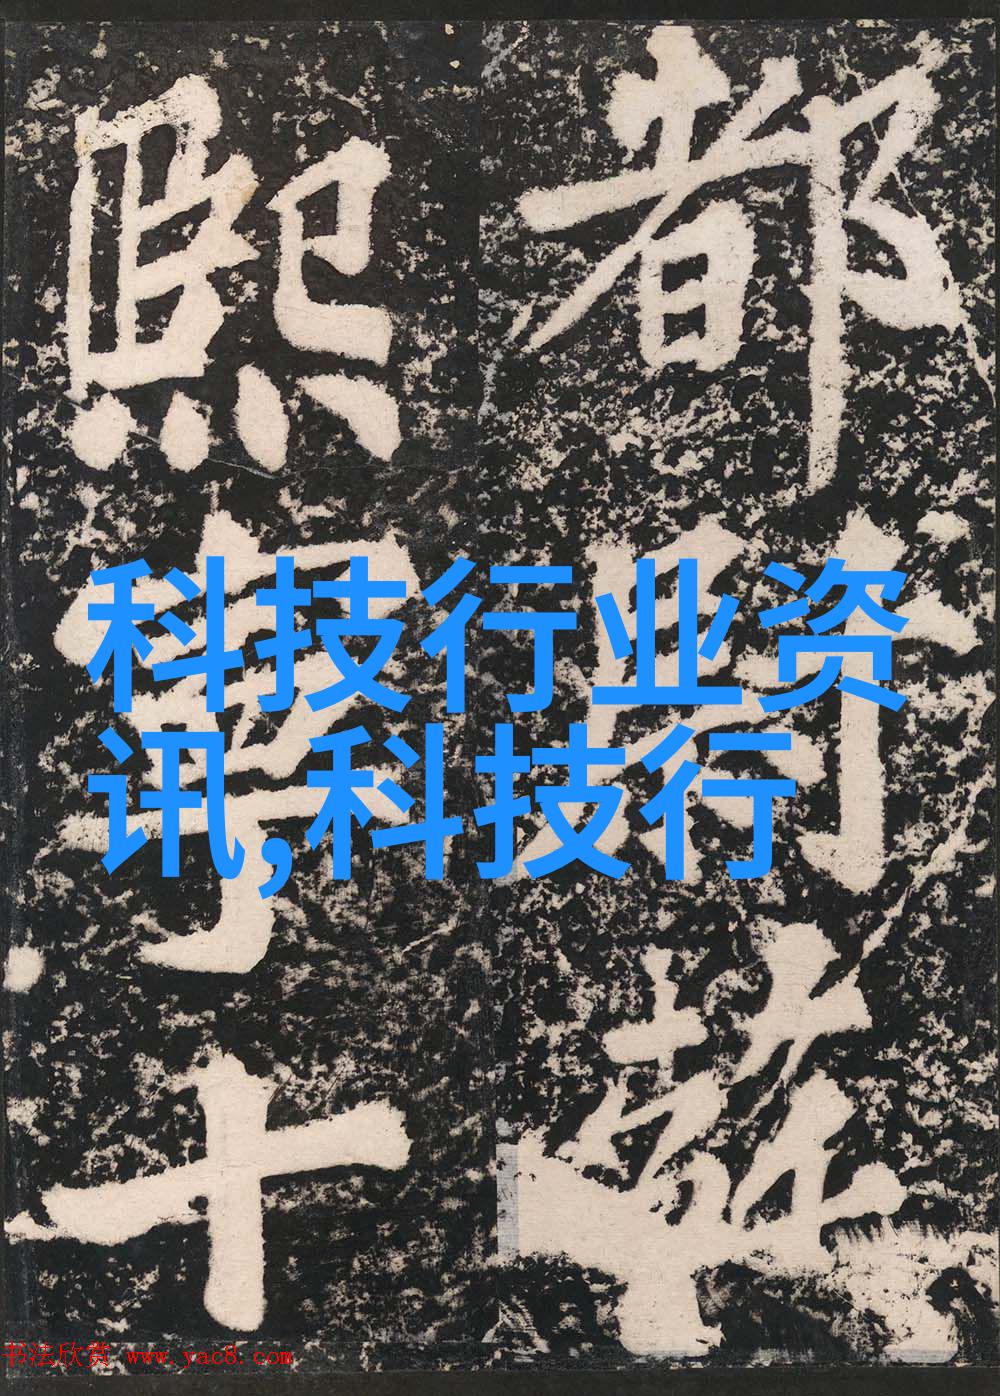 都
熙寧十
科技行业资
讯,科技行
书法欣赏 www.yac8.com